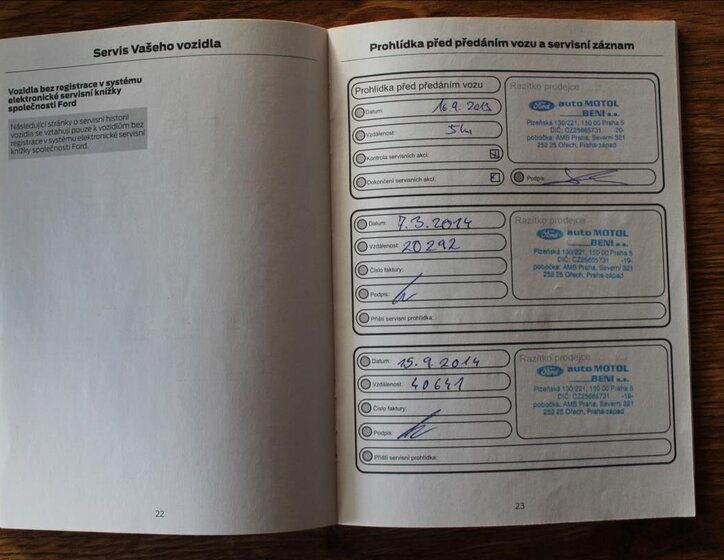 Servis Vašeho vozidla
Vozidla bez registrace v systému
elektronické servisní knížky
společnosti Ford
Následující stránky o servisní historii
vozidla se vztahují pouze k vozidlům bez
registrace v systému elektronické servisní
knížky společnosti Ford.
22
Prohlídka před předáním vozu a servisní záznam
Prohlídka před předáním vozu
Datum: 16.9.2013
Vzdálenost: 5km
Kontrola servisních akcí:
Dokončení servisních akcí:
Razítko prodejce
Ford auto MOTOL
BENI a.s.
Plzeňská 130/221, 150 00 Praha 5
DIČ: CZ25665731 -20-
pobočka: AMB Praha, Severní 321
252 25 Ořech, Praha-západ
Podpis:
Datum: 7.3.2014
Vzdálenost: 20292
Číslo faktury:
Podpis:
Příští servisní prohlídka:
Razítko prodejce
Ford auto MOTOL
BENI a.s.
Plzeňská 130/221, 150 00 Praha 5
DIČ: CZ25665731 -19-
pobočka: AMB Praha, Severní 321
252 25 Ořech, Praha-západ
Datum: 15.9.2014
Vzdálenost: 40641
Číslo faktury:
Podpis:
Příští servisní prohlídka:
Razítko prodejce
Ford auto MOTOL
BENI a.s.
Plzeňská 130/221, 150 00 Praha 5
DIČ: CZ25665731 -19-
pobočka: AMB Praha, Severní 321
252 25 Ořech, Praha-západ
23